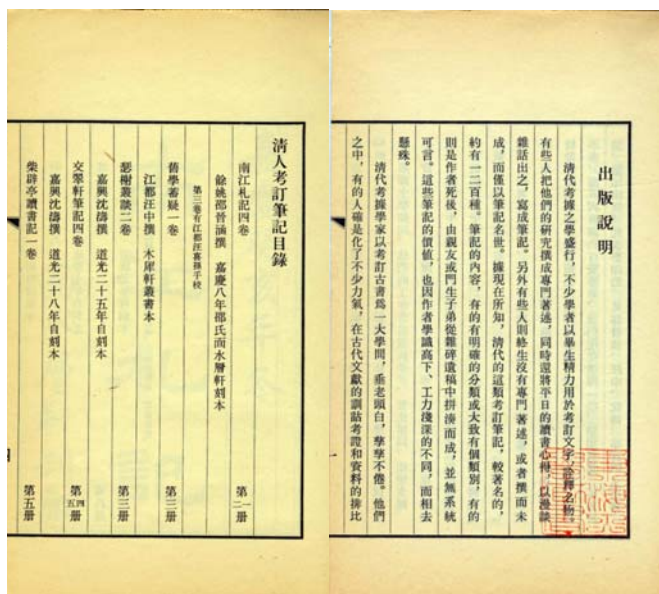 出版說明
清代考據之學盛行，不少學者以畢生精力用於考訂文字、詮釋名物，
有些人把他們的研究撰成專門著述，同時還將平日的讀書心得，以漫談
雜話出之，寫成筆記。另外有些人則終生沒有專門著述，或者撰而未
成，而僅以筆記名世。據現在所知，清代的這類考訂筆記，較著名的，
約有一二百種。筆記的內容，有的有明確的分類或大致有個類別，有的
則是作者死後，由親友或門生子弟從雜碎遺稿中拼湊而成，並無系統
可言。這些筆記的價值，也因作者學識高下、工力淺深的不同，而相去
懸殊。
清代考據學家以考訂古書爲一大學問，垂老頭白，孳孳不倦。他們
之中，有的人確是化了不少力氣，在古代文獻的訓詁考證和資料的排比
清人考訂筆記目錄
南江札記四卷 第一二册
餘姚邵晉涵撰 嘉慶八年邵氏面水層軒刻本
第三卷有江都汪喜孫手校
舊學蓄疑一卷 第三册
江都汪中撰 木犀軒叢書本
瑟榭叢談二卷 第三册
嘉興沈濤撰 道光二十五年自刻本
交翠軒筆記四卷 第四五册
嘉興沈濤撰 道光二十八年自刻本
柴辟亭讀書記一卷 第五册